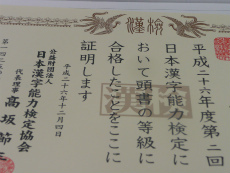 漢検
平成二十六年度第二回
日本漢字能力検定に
おいて頭書の等級に
合格したことをここに
証明します
平成二十六年十二月四日
公益財団法人
日本漢字能力検定協会
代表理事 高坂節三
漢検